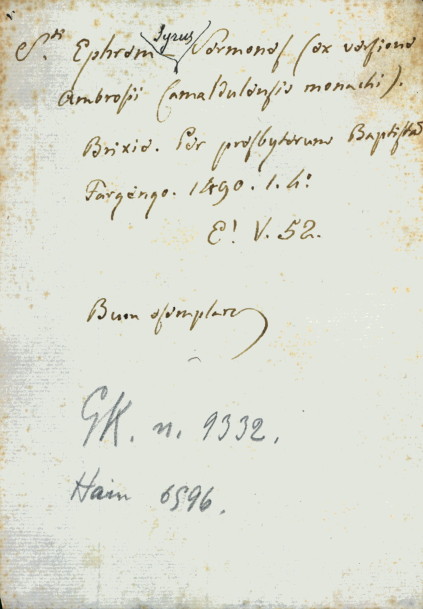 S.ti Ephrem Syrus Sermones (ex versione
Ambrosii Camaldulensis monachi).
Brixie. Per presbyterum Baptistā
Fargengo. 1490. 1. 4º
E! V. 52.
Buon esemplare
GK. n. 9332.
Hain 6596.